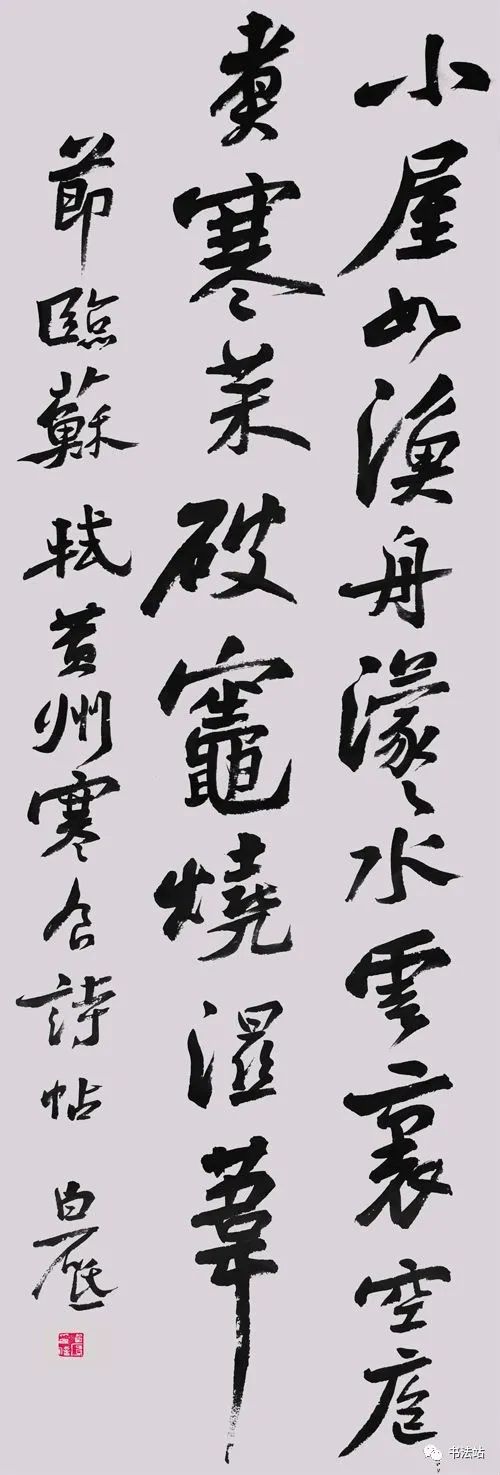 小屋如漁舟濛々水雲裏空庖
煮寒菜破竈燒濕葦
節臨蘇軾黄州寒食詩帖 白砥
书法站